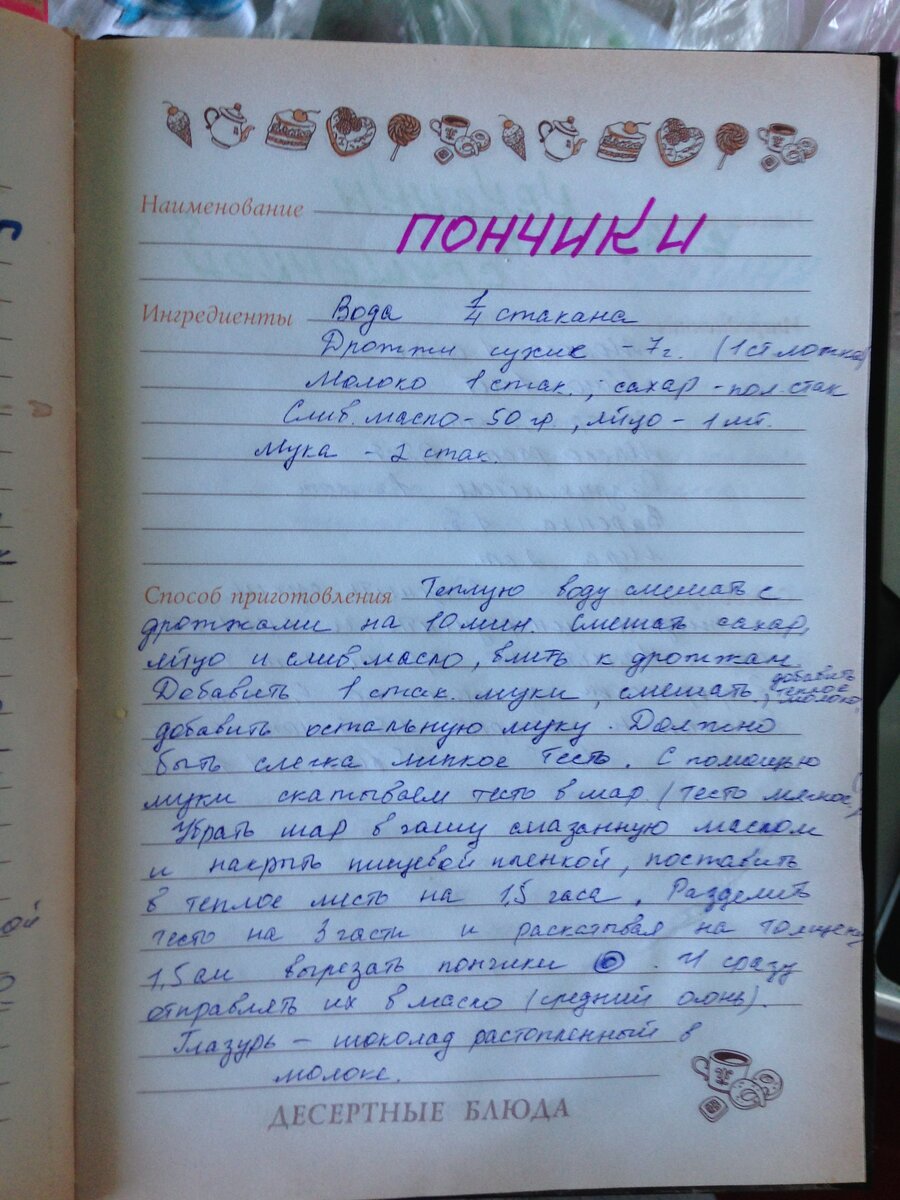 Наименование
ПОНЧИКИ
Ингредиенты Вода 1/4 стакана
Дрожжи сухие - 7г. (1 ст ложка)
Молоко 1 стак., сахар - пол. стак
Слив. масло - 50 гр., яйцо - 1 шт.
Мука - 2 стак.
Способ приготовления Теплую воду смешать с
дрожжами на 10 мин. Смешать сахар,
яйцо и слив. масло, влить к дрожжам.
Добавить 1 стак. муки, смешать, добавить теплое молоко,
добавить остальную муку. Должно
быть слегка липкое тесто. С помощью
муки скатываем тесто в шар (тесто мягкое)
Убрать шар в чашу смазанную маслом
и накрыть пищевой пленкой, поставить
в теплое место на 1,5 часа. Разделить
тесто на 3 части и раскатывая на толщину
1,5 см вырезать пончики . И сразу
отправлять их в масло (средний огонь).
Глазурь - шоколад растопленный в
молоке.
ДЕСЕРТНЫЕ БЛЮДА